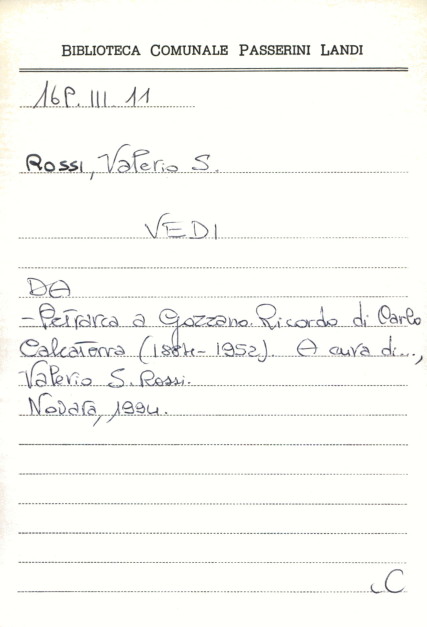 BIBLIOTECA COMUNALE PASSERINI LANDI
16P. III. 11
Rossi, Valerio S.
VEDI
DA
-Petrarca a Gozzano. Ricordo di Carlo
Calcaterra (1884-1952). A cura di...,
Valerio S. Rossi.
Novara, 1994.
C